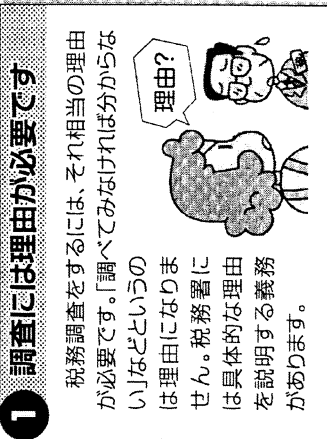 1 調査には理由が必要です
税務調査をするには、それ相当の理由
が必要です。「調べてみなければ分からな
い」などというの
は理由になりま
せん。税務署に
は具体的な理由
を説明する義務
があります。
理由?